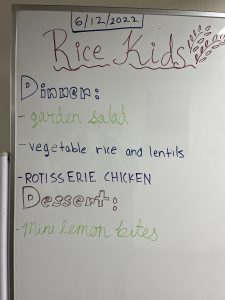 6/12/2022
Rice Kids
Dinner:
- garden salad
- vegetable rice and lentils
- ROTISSERIE CHICKEN
Dessert:
- mini lemon bites